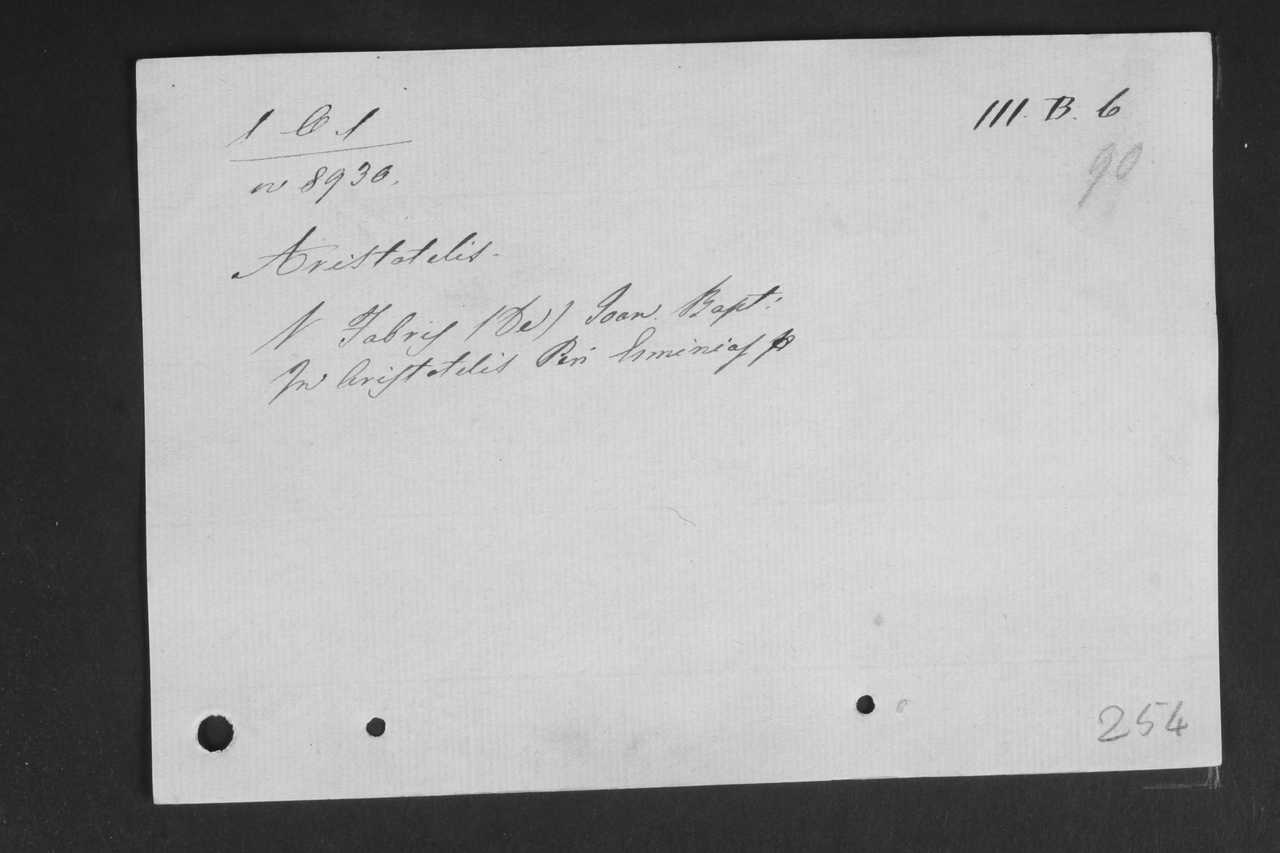 1 C 1
n 8930.
III. B. 6
90
Aristotelis.
V Fabris (De) Joan. Bapt:
In Aristotelis Peri Ermenias
254